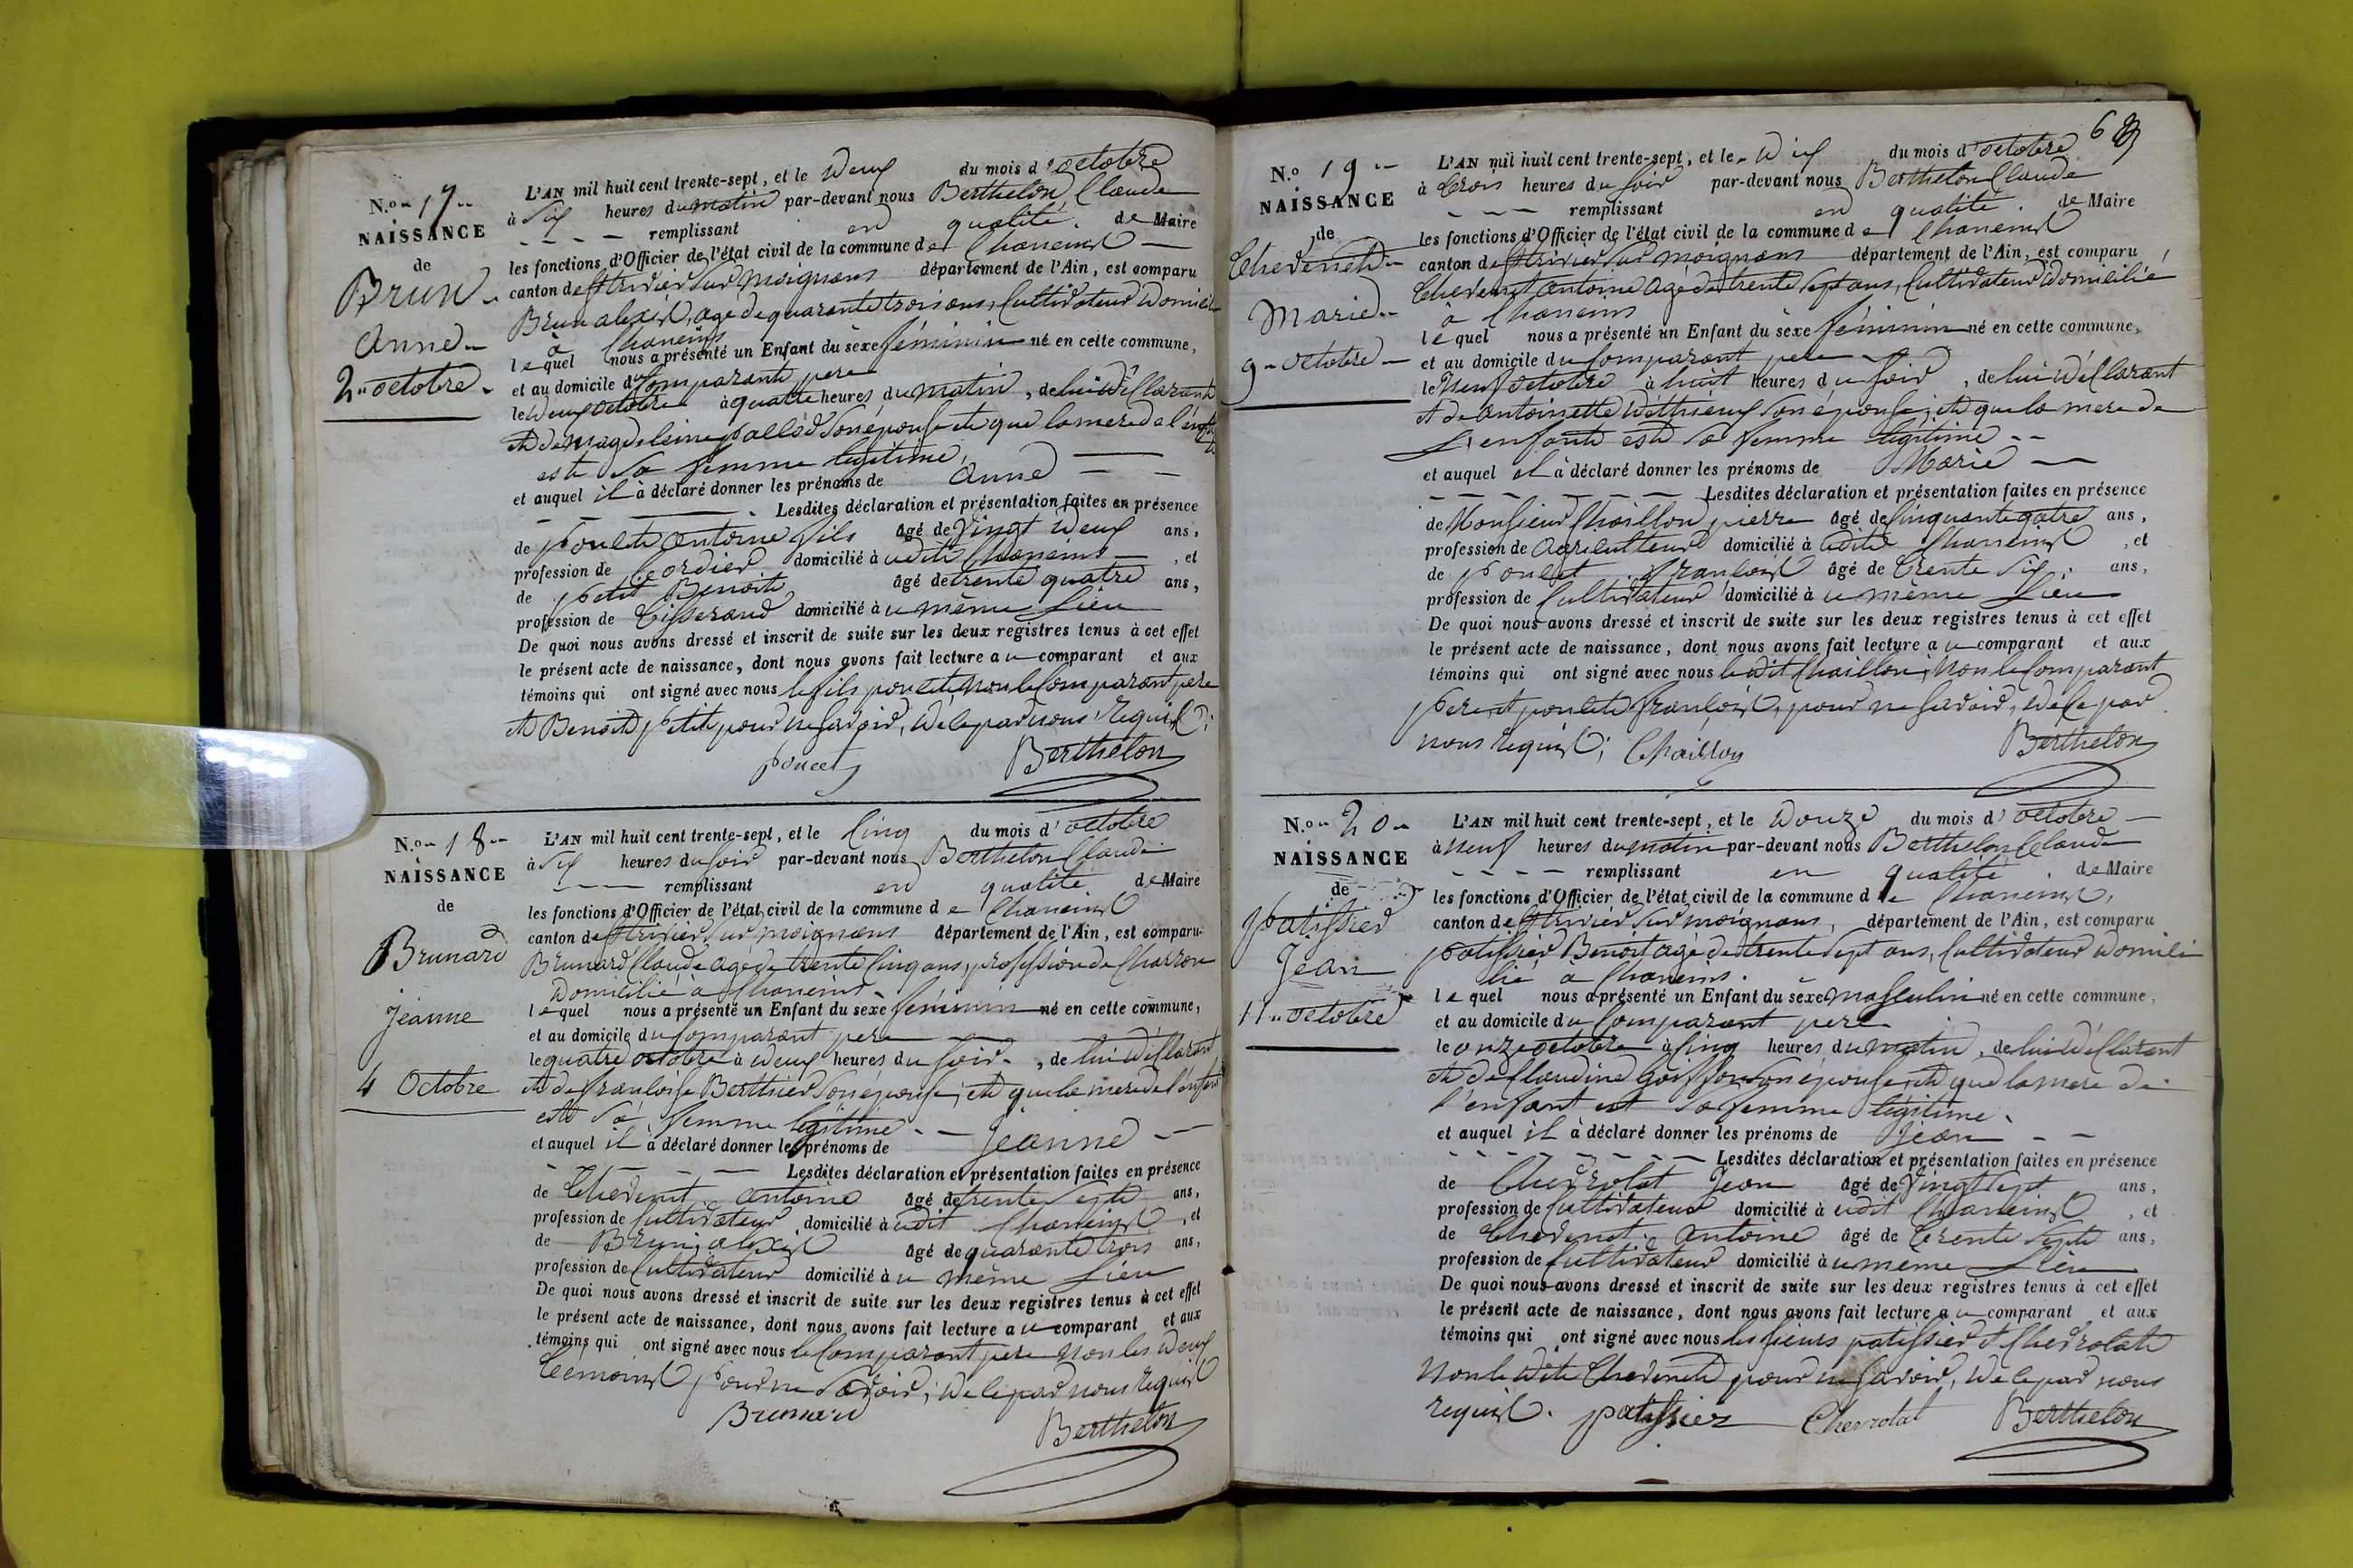 N.o 17
NAISSANCE
de
Brun
Anne
2 octobre
L'AN mil huit cent trente-sept, et le deux du mois d'octobre
à six heures du matin par-devant nous Berthelon Claude
remplissant en qualité de Maire
les fonctions d'Officier de l'état civil de la commune de Chaneins
canton de St trivier sur moignans département de l'Ain, est comparu
Brun alexis, agé de quarante trois ans, Cultivateur domicilié
à Chaneins
lequel nous a présenté un Enfant du sexe féminin né en cette commune,
et au domicile du Comparant pere
le deux octobre à quatre heures du matin, de lui déclarant
et de magdeleine son épouse et que la mere de l'enfant
est sa femme légitime,
et auquel il à déclaré donner les prénoms de Anne
Lesdites déclaration et présentation faites en présence
de poncet antoine fils âgé de Vingt deux ans,
profession de Cordier domicilié à udit Chaneins, et
de petit Benoit âgé de trente quatre ans,
profession de tisserand domicilié à u même lieu
De quoi nous avons dressé et inscrit de suite sur les deux registres tenus à cet effet
le présent acte de naissance, dont nous avons fait lecture a u comparant et aux
témoins qui ont signé avec nous le fils poncet non le Comparant pere
et Benoit petit pour ne savoir, de ce par nous requis;
poncet Berthelon
N.o 18
NAISSANCE
de
Brunard
Jeanne
4 Octobre
L'AN mil huit cent trente-sept, et le Cinq du mois d'octobre
à six heures du soir par-devant nous Berthelon Claude
remplissant en qualité de Maire
les fonctions d'Officier de l'état civil de la commune de Chaneins
canton de St trivier sur moignans département de l'Ain, est comparu
Brunard Claude agé de trente Cinq ans, profession de Charron
domicilié a Chaneins
lequel nous a présenté un Enfant du sexe féminin né en cette commune,
et au domicile du Comparant pere
le quatre octobre à deux heures du soir, de lui déclarant
et de françoise Berthier son épouse; et que la mere de l'enfant
est sa femme légitime
et auquel il à déclaré donner les prénoms de Jeanne
Lesdites déclaration et présentation faites en présence
de Chevenet antoine âgé de trente sept ans,
profession de Cultivateur domicilié à udit Chaneins, et
de Brun alexis âgé de quarante trois ans,
profession de Cultivateur domicilié à u même lieu
De quoi nous avons dressé et inscrit de suite sur les deux registres tenus à cet effet
le présent acte de naissance, dont nous avons fait lecture a u comparant et aux
témoins qui ont signé avec nous le Comparant pere non les deux
témoins pour ne savoir; de ce par nous requis
Brunard
Berthelon
N.o 19
NAISSANCE
de
Chevenet
Marie
9 octobre
L'AN mil huit cent trente-sept, et le dix du mois d'octobre
à trois heures du soir par-devant nous Berthelon Claude
remplissant en qualité de Maire
les fonctions d'Officier de l'état civil de la commune de Chaneins
canton de St trivier sur moignans département de l'Ain, est comparu
Chevenet antoine agé de trente sept ans, Cultivateur domicilié
à Chaneins
lequel nous a présenté un Enfant du sexe féminin né en cette commune,
et au domicile du Comparant pere
le Neuf octobre à huit heures du soir, de lui déclarant
et de antoinette déthieux son épouse; et que la mere de
L'enfant est sa femme légitime
et auquel il à déclaré donner les prénoms de Marie
Lesdites déclaration et présentation faites en présence
de Monsieur Chaillon pierre âgé de Cinquante quatre ans,
profession de Agriculteur domicilié à udit Chaneins, et
de poncet françois âgé de trente six ans,
profession de Cultivateur domicilié à u même lieu
De quoi nous avons dressé et inscrit de suite sur les deux registres tenus à cet effet
le présent acte de naissance, dont nous avons fait lecture a u comparant et aux
témoins qui ont signé avec nous ledit Chaillon, non le Comparant
pere et poncet françois, pour ne savoir, de ce par
nous requis; Chaillon Berthelon
N.o 20
NAISSANCE
de
patissier
Jean
11 octobre
L'AN mil huit cent trente-sept, et le douze du mois d'octobre
à neuf heures du matin par-devant nous Berthelon Claude
remplissant en qualité de Maire
les fonctions d'Officier de l'état civil de la commune de Chaneins,
canton de St trivier sur moignans, département de l'Ain, est comparu
patissier Benoit agé de trente sept ans, Cultivateur domici
lié à Chaneins
lequel nous a présenté un Enfant du sexe masculin né en cette commune,
et au domicile du Comparant pere
le onze octobre à Cinq heures du matin, de lui déclarant
et de Claudine son épouse, et que la mere de
l'enfant est sa femme légitime
et auquel il à déclaré donner les prénoms de Jean
Lesdites déclaration et présentation faites en présence
de Chevrolat Jean âgé de Vingt sept ans,
profession de Cultivateur domicilié à udit Chaneins, et
de Chevenet antoine âgé de trente sept ans,
profession de Cultivateur domicilié à u même lieu
De quoi nous avons dressé et inscrit de suite sur les deux registres tenus à cet effet
le présent acte de naissance, dont nous avons fait lecture a u comparant et aux
témoins qui ont signé avec nous les sieurs patissier et Chevrolat
non ledit Chevenet pour ne savoir, de ce par nous
requis. patissier Chevrolat Berthelon